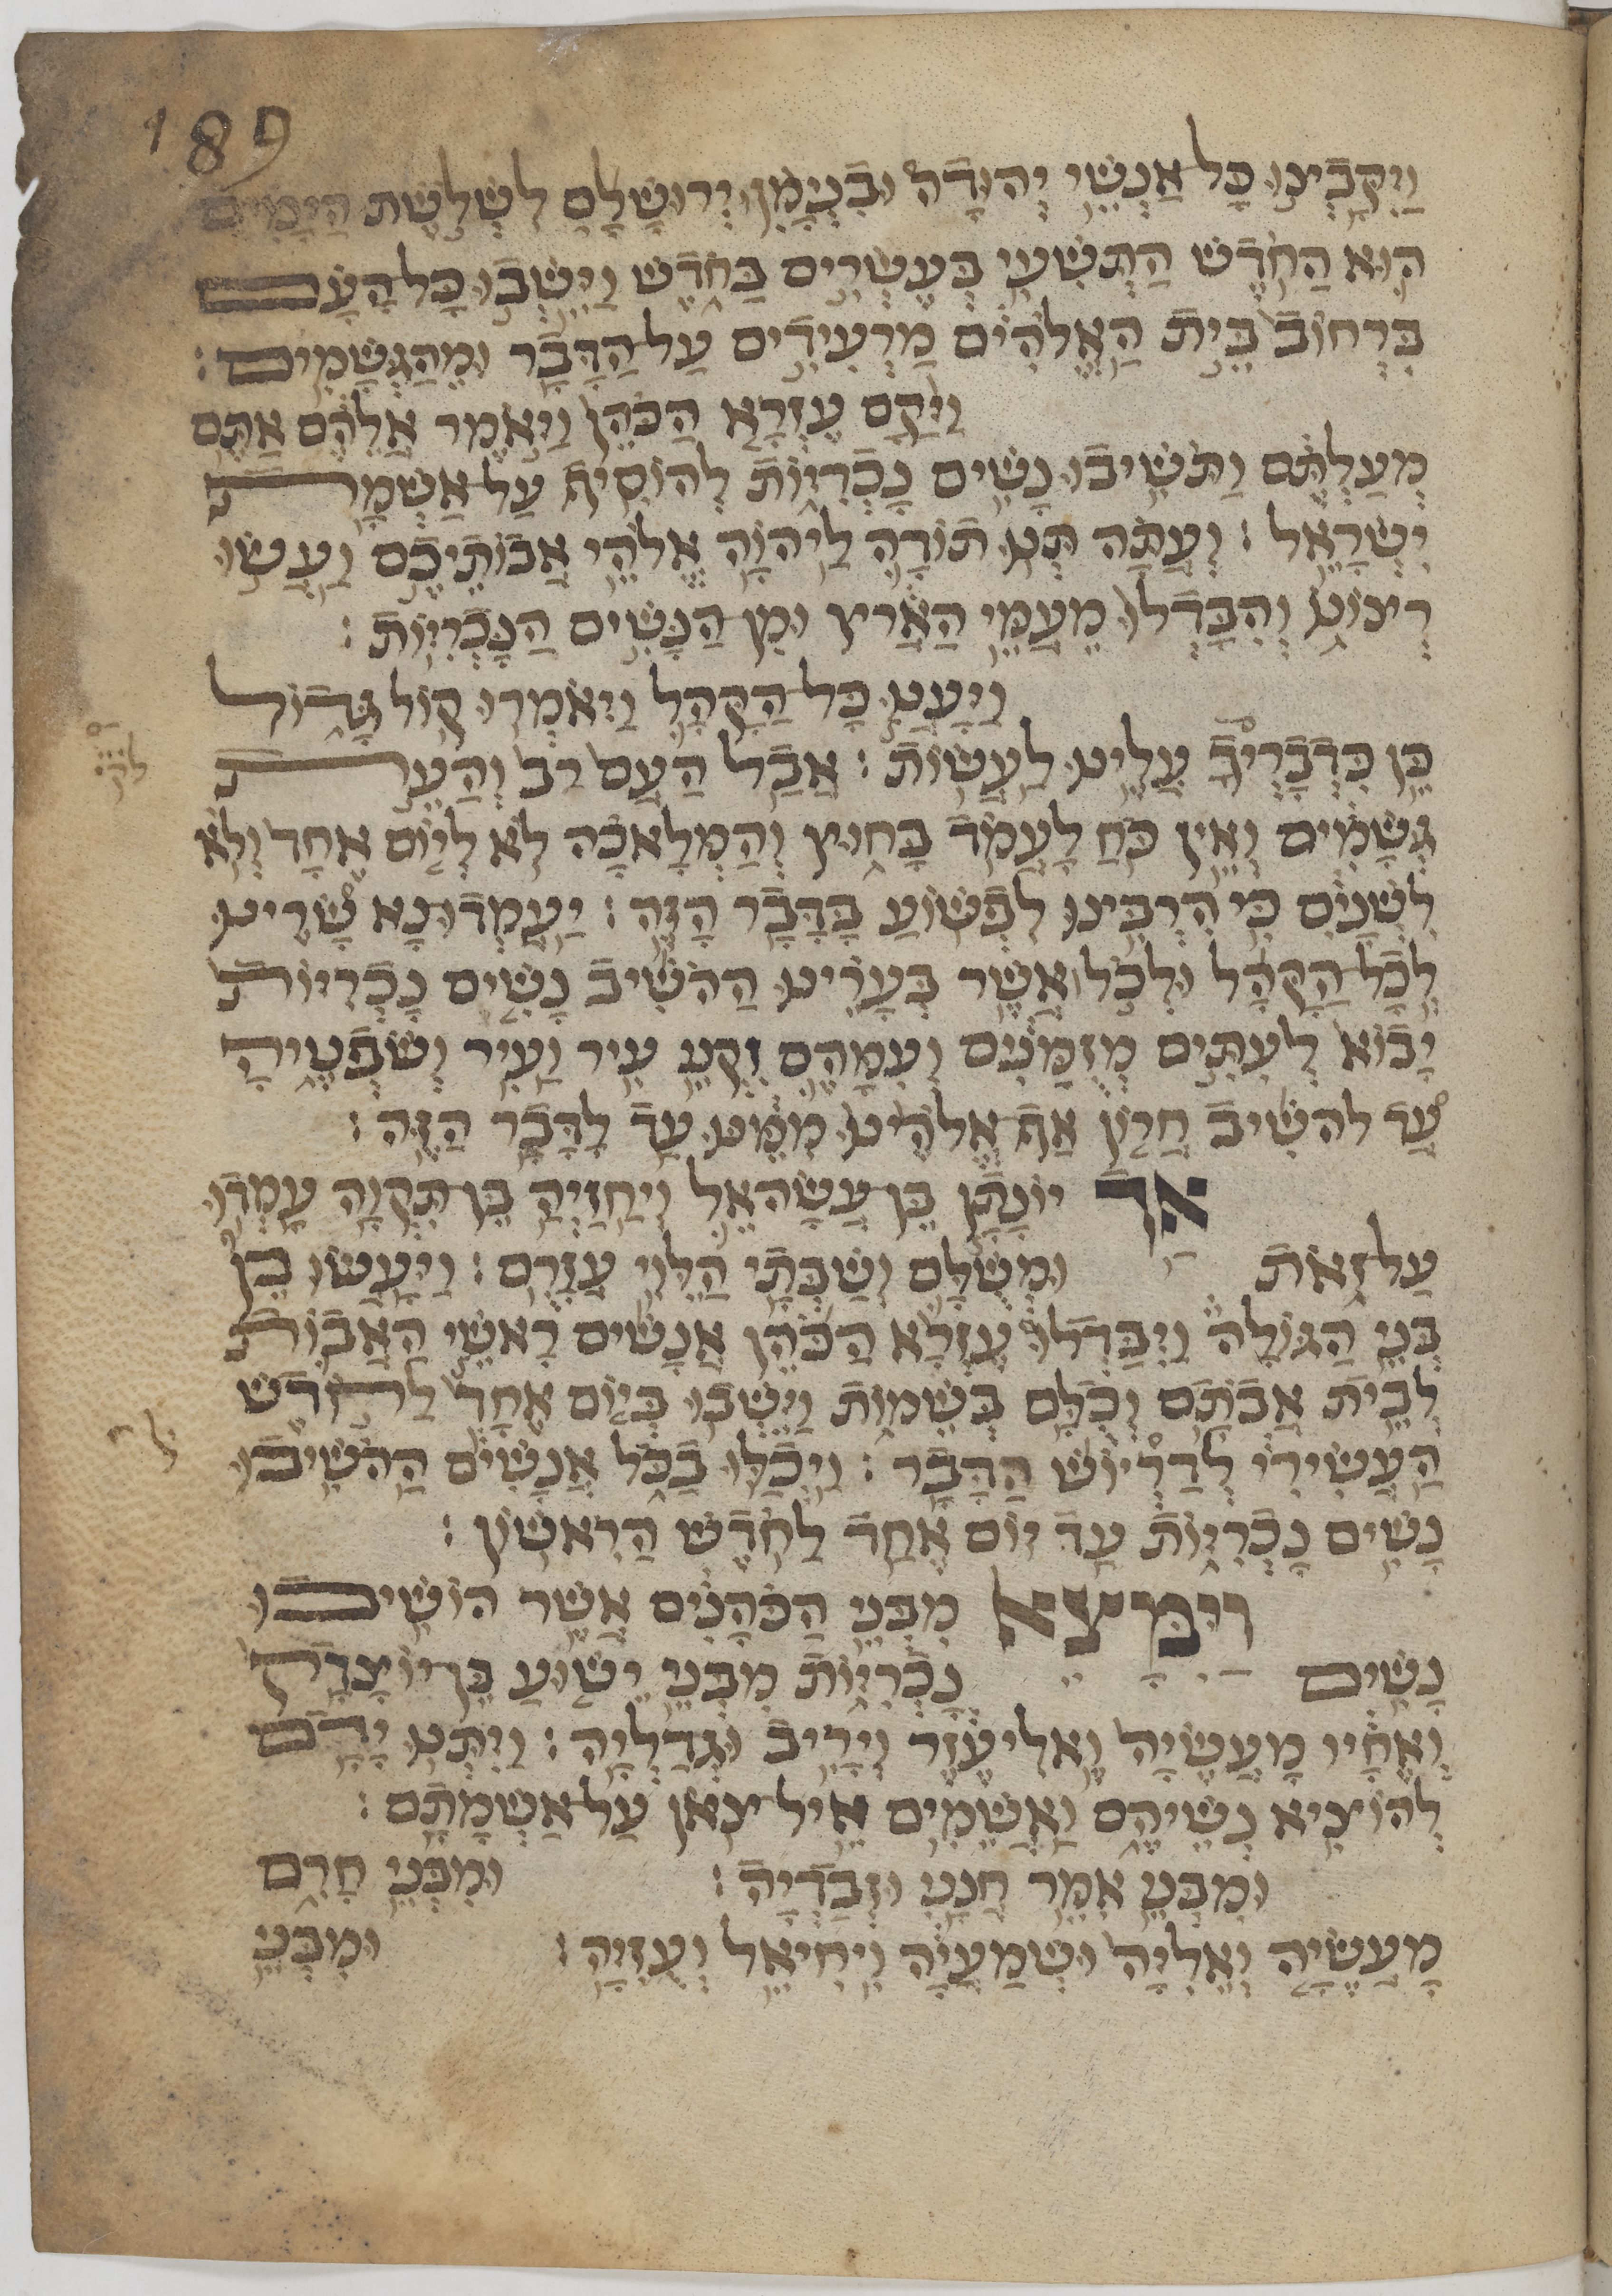 189
וַיִּקָּבְצוּ כָל אַנְשֵׁי יְהוּדָה וּבִנְיָמִן יְרוּשָׁלַם לִשְׁלֹשֶׁת הַיָּמִים
הוּא הַחֹדֶשׁ הַתְּשִׁעִי בְּעֶשְׂרִים בַּחֹדֶשׁ וַיֵּשְׁבוּ כָל הָעָם
בִּרְחוֹב בֵּית הָאֱלֹהִים מַרְעִידִים עַל הַדָּבָר וּמֵהַגְּשָׁמִים׃
וַיָּקָם עֶזְרָא הַכֹּהֵן וַיֹּאמֶר אֲלֵהֶם אַתֶּם
מְעַלְתֶּם וַתֹּשִׁיבוּ נָשִׁים נָכְרִיּוֹת לְהוֹסִיף עַל אַשְׁמַת
יִשְׂרָאֵל׃ וְעַתָּה תְּנוּ תוֹדָה לַיהוָה אֱלֹהֵי אֲבוֹתֵיכֶם וַעֲשׂוּ
רְצוֹנוֹ וְהִבָּדְלוּ מֵעַמֵּי הָאָרֶץ וּמִן הַנָּשִׁים הַנָּכְרִיּוֹת׃
וַיַּעֲנוּ כָל הַקָּהָל וַיֹּאמְרוּ קוֹל גָּדוֹל
כֵּן כִּדְבָרְיךָ עָלֵינוּ לַעֲשׂוֹת׃ אֲבָל הָעָם רָב וְהָעֵת
גְּשָׁמִים וְאֵין כֹּחַ לַעֲמֹד בַּחוּץ וְהַמְּלָאכָה לֹא לְיוֹם אֶחָד וְלֹא
לִשְׁנַיִם כִּי הִרְבִּינוּ לִפְשׁוֹעַ בַּדָּבָר הַזֶּה׃ יַעֲמְדוּ נָא שָׂרֵינוּ
לְכָל הַקָּהָל וּלְכֹל אֲשֶׁר בְּעָרֵינוּ הַהֹשִׁיב נָשִׁים נָכְרִיּוֹת
יָבוֹא לְעִתִּים מְזֻמָּנִים וְעִמָּהֶם זִקְנֵי עִיר וָעִיר וְשֹׁפְטֶיהָ
עַד לְהָשִׁיב חֲרוֹן אַף אֱלֹהֵינוּ מִמֶּנּוּ עַד לַדָּבָר הַזֶּה׃
אַךְ יוֹנָתָן בֶּן עֲשָׂהאֵל וְיַחְזְיָה בֶן תִּקְוָה עָמְדוּ
עַל זֹאת וּמְשֻׁלָּם וְשַׁבְּתַי הַלֵּוִי עֲזָרֻם׃ וַיַּעֲשׂוּ כֵן
בְּנֵי הַגּוֹלָה וַיִּבָּדְלוּ עֶזְרָא הַכֹּהֵן אֲנָשִׁים רָאשֵׁי הָאָבוֹת
לְבֵית אֲבֹתָם וְכֻלָּם בְּשֵׁמוֹת וַיֵּשְׁבוּ בְּיוֹם אֶחָד לַחֹדֶשׁ
הָעֲשִׂירִי לְדַרְיוֹשׁ הַדָּבָר׃ וַיְכַלּוּ בַכֹּל אֲנָשִׁים הַהֹשִׁיבוּ
נָשִׁים נָכְרִיּוֹת עַד יוֹם אֶחָד לַחֹדֶשׁ הָרִאשׁוֹן׃
וַיִּמָּצֵא מִבְּנֵי הַכֹּהֲנִים אֲשֶׁר הוֹשִׁיבוּ
נָשִׁים נָכְרִיּוֹת מִבְּנֵי יֵשׁוּעַ בֶּן יוֹצָדָק
וְאֶחָיו מַעֲשֵׂיָה וֶאֱלִיעֶזֶר וְיָרִיב וּגְדַלְיָה׃ וַיִּתְּנוּ יָדָם
לְהוֹצִיא נְשֵׁיהֶם וַאֲשֵׁמִים אֵיל צֹאן עַל אַשְׁמָתָם׃
וּמִבְּנֵי אִמֵּר חֲנָנִי וּזְבַדְיָה׃ וּמִבְּנֵי חָרִם
מַעֲשֵׂיָה וְאֵלִיָּה וּשְׁמַעְיָה וִיחִיאֵל וְעֻזִיָּה׃ וּמִבְּנֵי